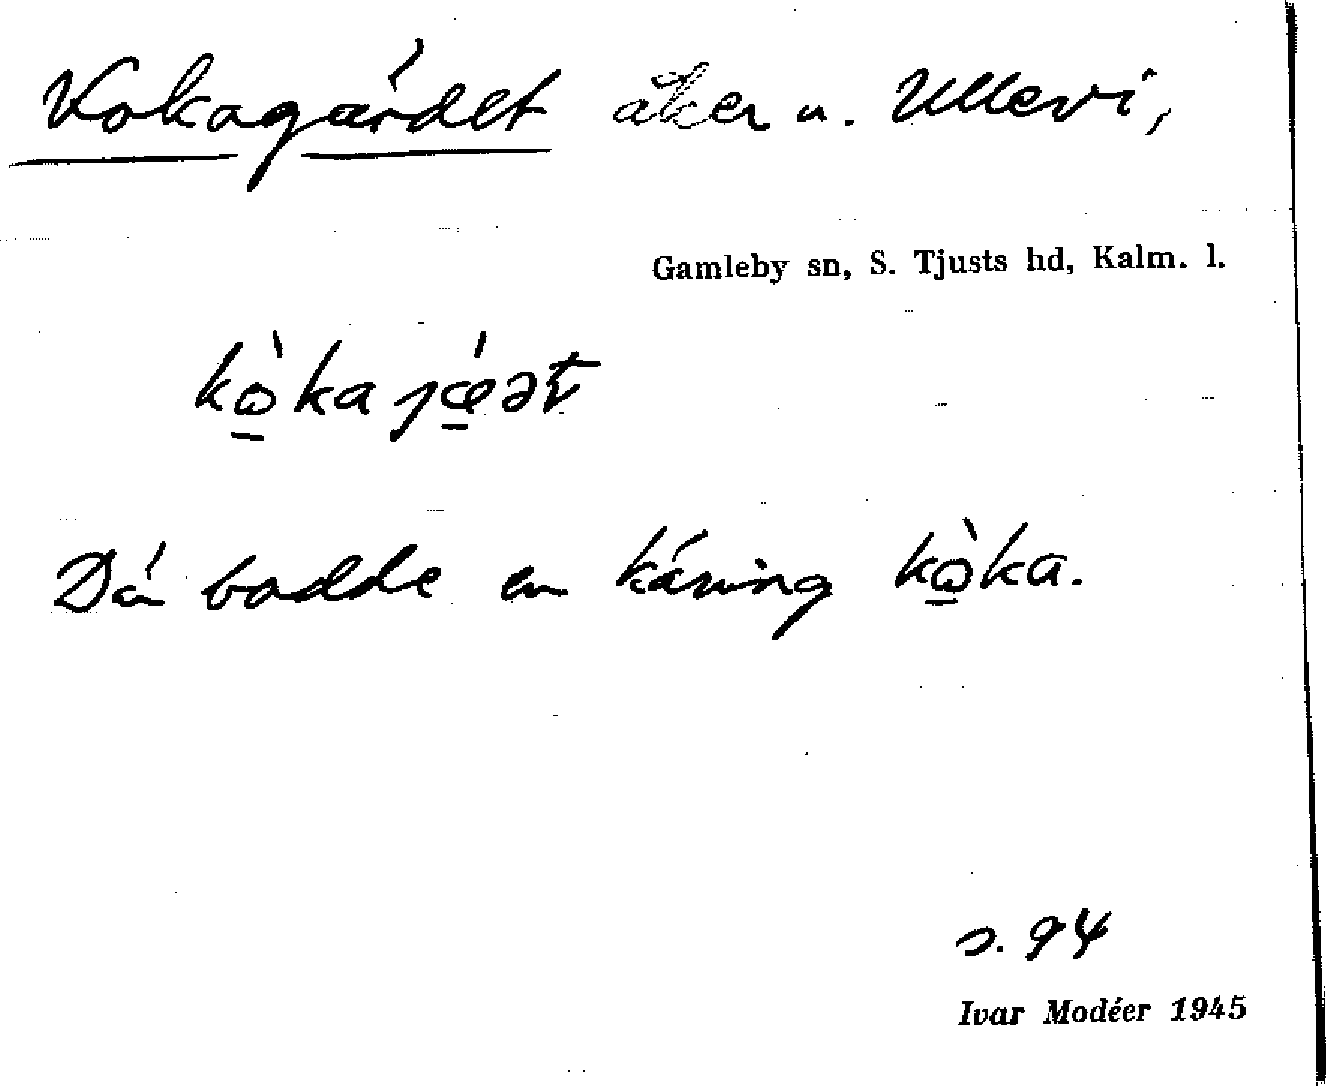 Kokagärdet åker u. Ullevi,
Gamleby sn, S. Tjusts hd, Kalm. l.
kò̱ka jǽ̱ət
Då bodde en käring kò̱ka.
s. 94
Ivar Modéer 1945